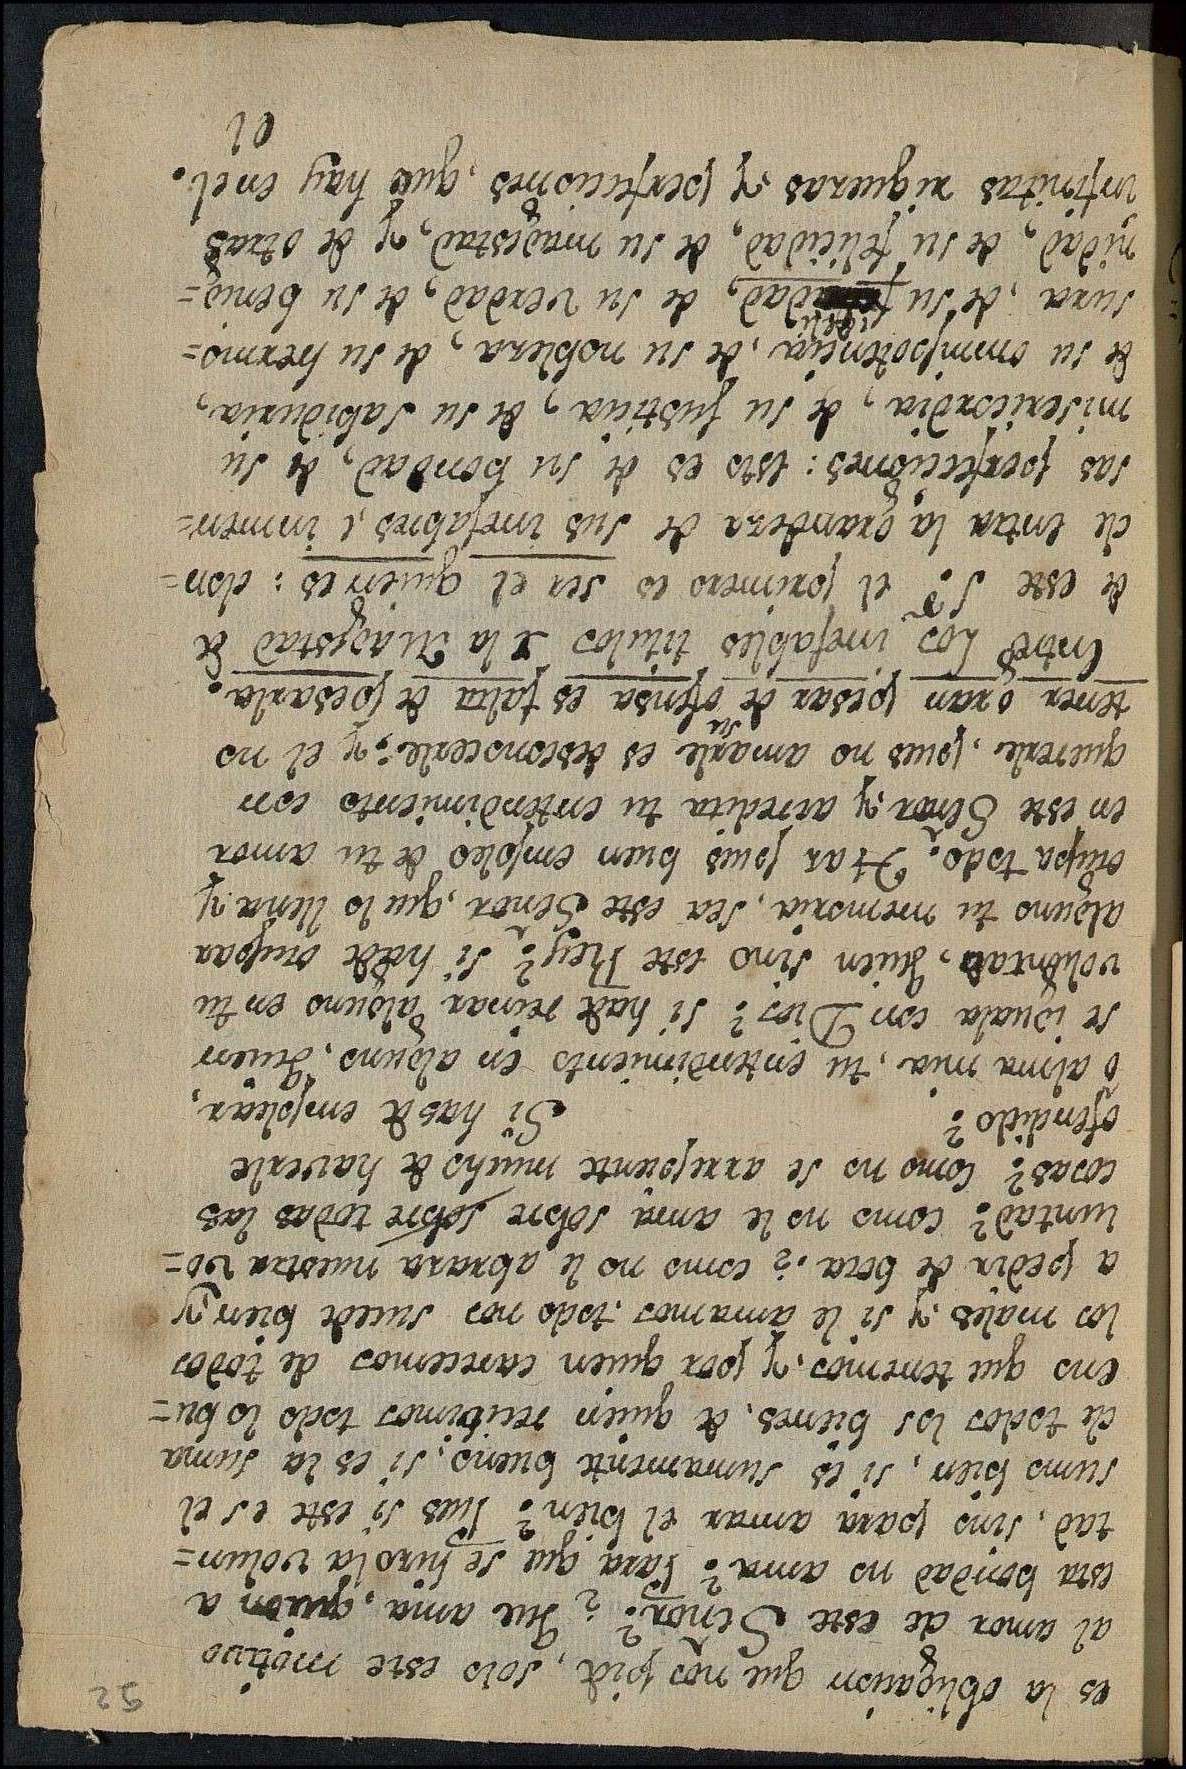 52
es la obligacion que nos pide, solo este motivo
al amor de este Señor? ¿ Que ama, quien a
esta bondad no ama? Para que se hizo la volun=
tad, sino para amar el bien? Pues si este es el
sumo bien, si es sumamente bueno, si es la suma
de todos los bienes, de quien recibimos todo lo bu=
eno que tenemos y, por quien carecemos de todos
los males, y si le amamos, todo nos sucede bien, y
a pedir de boca, ¿ como no le abraza nuestra vo=
luntad? como no le ama sobre sobre todas las
cosas? Como no se arrepiente mucho de haverle
ofendido? Si has de emplear,
o alma mia, tu entendimiento en alguno, Quien
se iguala con Dios? si hade reinar alguno en tu
voluntad, Quien sino este Rey? si hade ocupar
alguno tu memoria, sea este Señor, que lo llena y
ocupa todo. Haz pues buen empleo de tu amor
en este Señor y, acredita tu entendimiento con
quererle, pues no amarle es desconocerle; y el no
tener gran pesar de su ofensa es falta de pesarla.
Entre los inefables titulos de la Magestad de
de este S.r el primero es ser el quien es: don=
de entra la grandeza de sus inefables, e inmen=
sas perfecciones: esto es de su bondad, de su
misericordia, de su justicia, de su sabiduria,
de su omnipotencia, de su nobleza, de su hermo=
sura, de su fidelidad, de su verdad, de su benig=
nidad, de su felicidad, de su magestad, y de otras
infinitas riquezas y perfecciones, que hay en el.
el